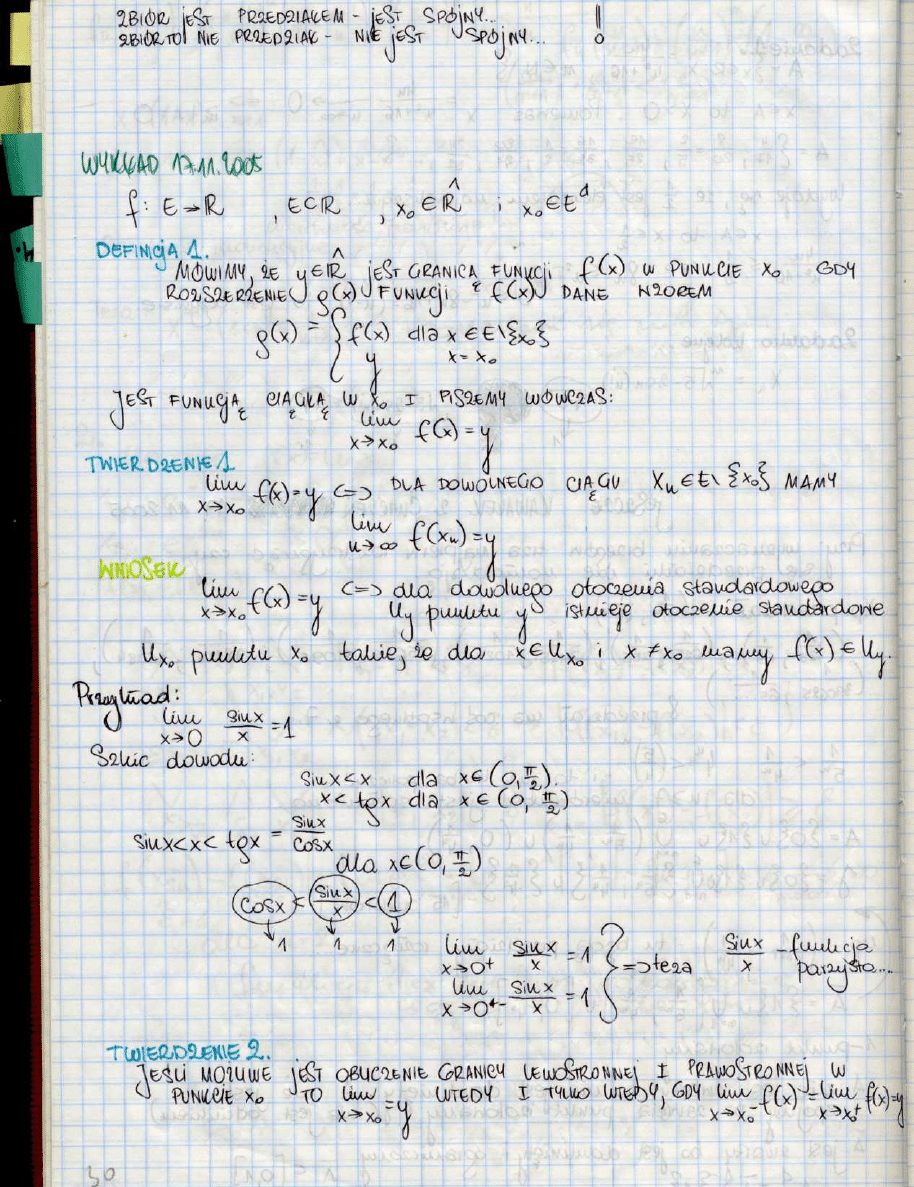 ZBIÓR JEST PRZEDZIAŁEM - JEST SPÓJNY... !
ZBIÓR TO NIE PRZEDZIAŁ - NIE JEST SPÓJNY...
WYKŁAD 17.11.2005
f: E→ℝ , E⊂ℝ , x₀∈ℝ̂ i x₀∈Eᵈ
DEFINICJA 1.
MÓWIMY, ŻE y∈ℝ̂ JEST GRANICĄ FUNKCJI f(x) W PUNKCIE x₀ GDY
ROZSZERZENIE g(x) FUNKCJI f(x) DANE WZOREM
g(x) = { f(x) dla x∈E\{x₀}
y x = x₀
JEST FUNKCJĄ CIĄGŁĄ W x₀ I PISZEMY WÓWCZAS:
lim x→x₀ f(x) = y
TWIERDZENIE 1
lim x→x₀ f(x) = y <=> DLA DOWOLNEGO CIĄGU xₙ∈E\{x₀} MAMY
lim n→∞ f(xₙ) = y
WNIOSEK
lim x→x₀ f(x) = y <=> dla dowolnego otoczenia standardowego
U_y punktu y istnieje otoczenie standardowe
U_x₀ punktu x₀ takie, że dla x∈U_x₀ i x≠x₀ mamy f(x)∈U_y.
Przykład:
lim x→0 sinx/x = 1
Szkic dowodu:
sinx < x dla x∈(0, π/2).
x < tgx dla x∈(0, π/2)
sinx < x < tgx = sinx/cosx
dla x∈(0, π/2)
cosx < sinx/x < 1
↓1 ↓1 ↓1
lim x→0⁺ sinx/x = 1 } => teza sinx/x - funkcja parzysta...
lim x→0⁻ sinx/x = 1
TWIERDZENIE 2.
JEŚLI MOŻLIWE JEST OBLICZENIE GRANICY LEWOSTRONNEJ I PRAWOSTRONNEJ W
PUNKCIE x₀ TO lim x→x₀ = y WTEDY I TYLKO WTEDY, GDY lim x→x₀⁻ f(x) = lim x→x₀⁺ f(x) = y
30